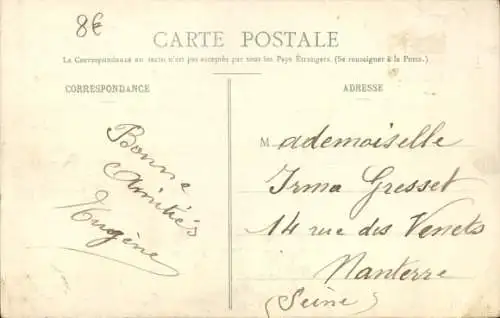 8€
CARTE POSTALE
La Correspondance au recto n'est pas acceptée par tous les Pays Étrangers. (Se renseigner à la Poste.)
CORRESPONDANCE
Bonne
Amitiés
Eugène
ADRESSE
Mademoiselle
Irma Gresset
14 rue des Venets
Nanterre
(Seine)